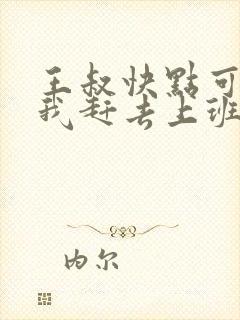 王叔快點可
我赶去上班
内尔